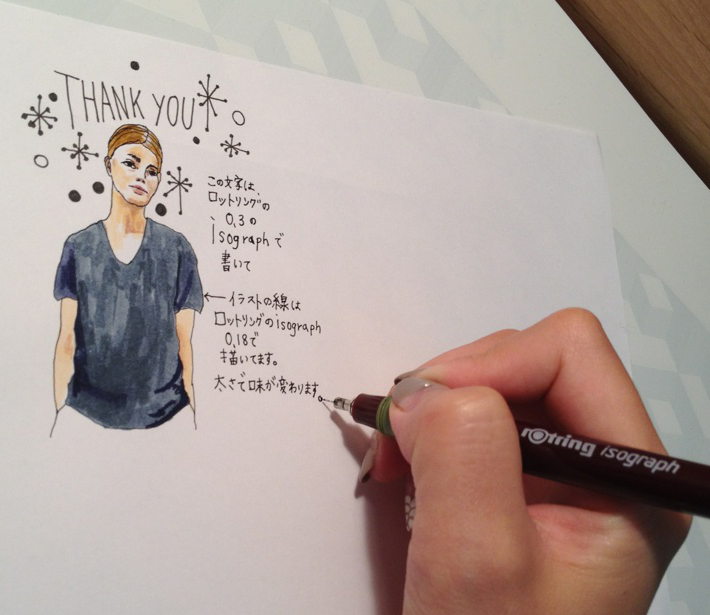 THANK YOU
この文字は、
ロットリングの
0,3の
isographで
書いて
←イラストの線は
ロットリングのisograph
0,18で
描いてます。
太さで味が変わります。
rotring isograph